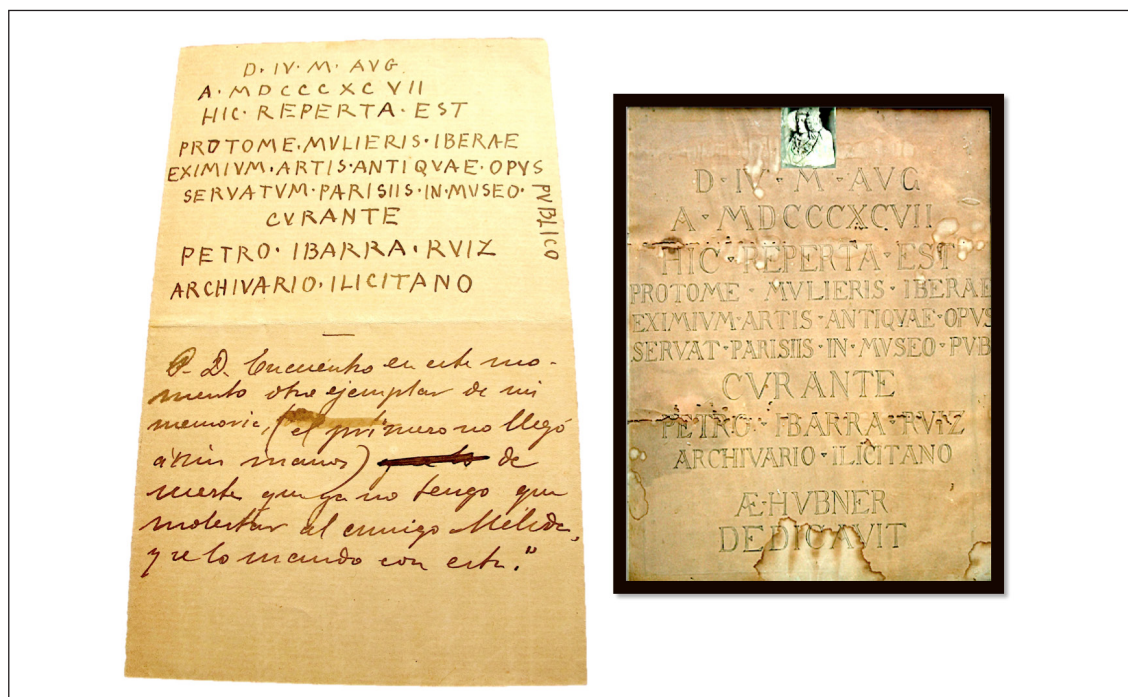 D · IV · M · AVG
A · MDCCCXCVII
HIC · REPERTA · EST
PROTOME · MVLIERIS · IBERAE
EXIMIVM · ARTIS · ANTIQVAE · OPVS
SERVATVM · PARISIIS · IN · MVSEO · PVBLICO
CVRANTE
PETRO · IBARRA · RVIZ
ARCHIVARIO · ILICITANO
P. D. Encuentro en este mo-
mento otro ejemplar de mi
memoria, (el primero no llegó
á mis manos) de
suerte que ya no tengo que
molestar al amigo Mélida,
y se lo mando con esta."
D · IV · M · AVG
A · MDCCCXCVII
HIC · REPERTA · EST
PROTOME · MVLIERIS · IBERAE
EXIMIVM · ARTIS · ANTIQVAE · OPVS
SERVAT · PARISIIS · IN · MVSEO · PVB
CVRANTE
PETRO · IBARRA · RVIZ
ARCHIVARIO · ILICITANO
Æ · HVBNER
DEDICAVIT